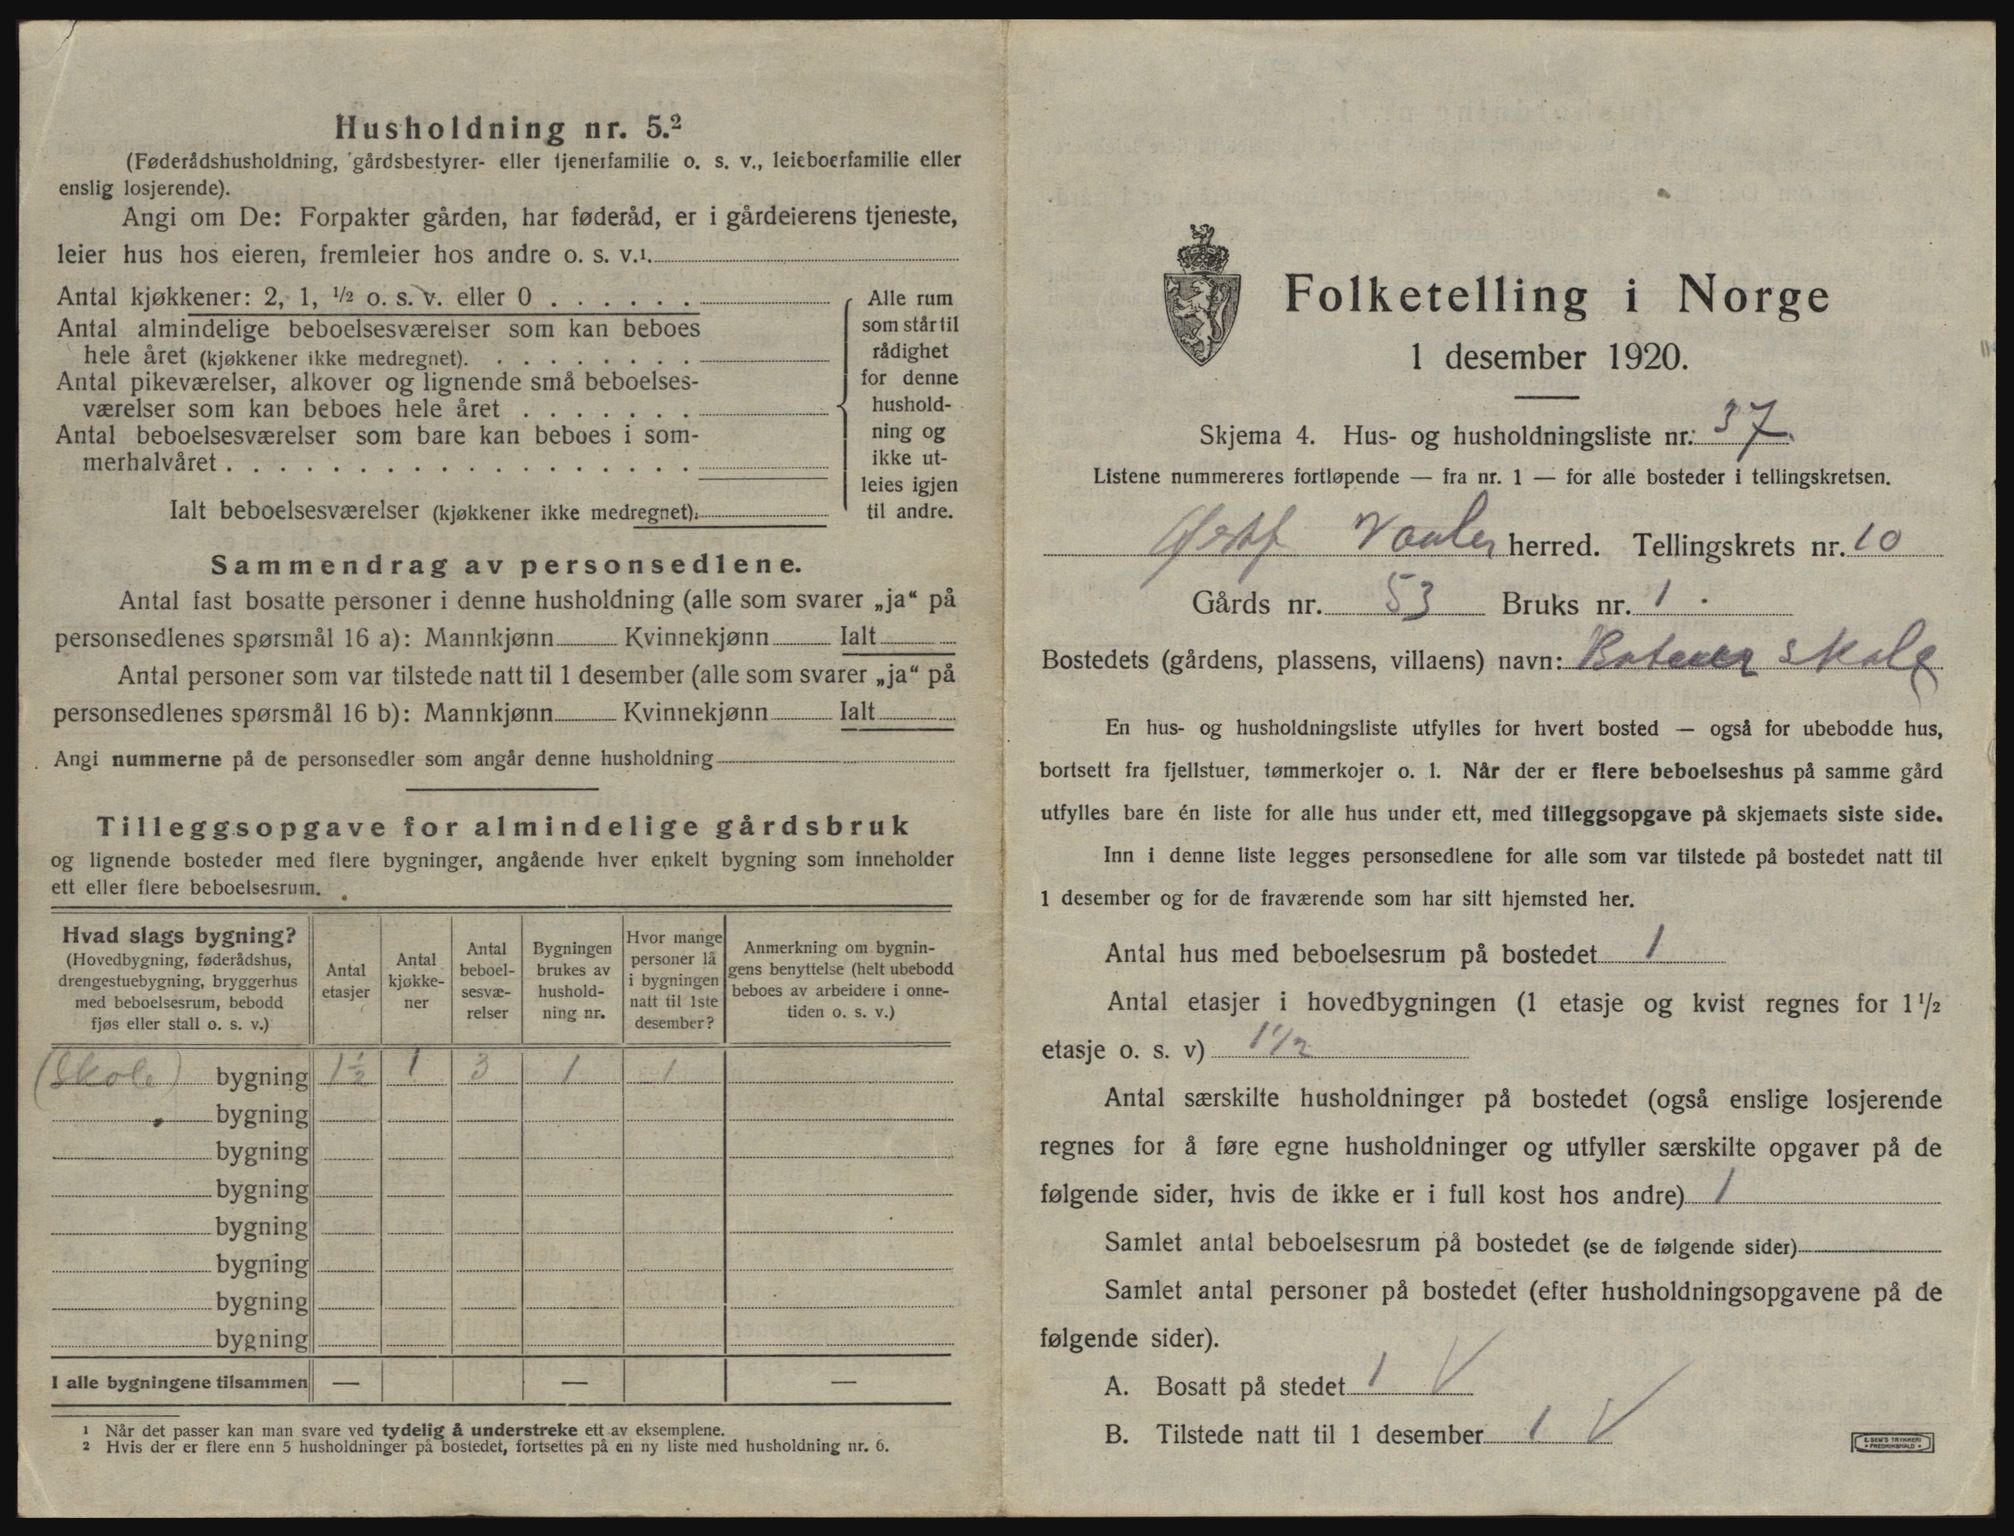 Husholdning nr. 5.²
(Føderådshusholdning, gårdsbestyrer- eller tjenerfamilie o. s. v., leieboerfamilie eller
enslig losjerende).
Angi om De: Forpakter gården, har føderåd, er i gårdeierens tjeneste,
leier hus hos eieren, fremleier hos andre o. s. v.¹
Antal kjøkkener: 2, 1, ½ o. s. v. eller 0 . . . . . .
Antal almindelige beboelsesværelser som kan beboes
hele året (kjøkkener ikke medregnet). . . . . . . . .
Antal pikeværelser, alkover og lignende små beboelses-
værelser som kan beboes hele året . . . . . . .
Antal beboelsesværelser som bare kan beboes i som-
merhalvåret . . . . . . . . . . . . . . . . . .
Ialt beboelsesværelser (kjøkkener ikke medregnet).
Alle rum
som står til
rådighet
for denne
hushold-
ning og
ikke ut-
leies igjen
til andre.
Sammendrag av personsedlene.
Antal fast bosatte personer i denne husholdning (alle som svarer „ja“ på
personsedlenes spørsmål 16 a): Mannkjønn Kvinnekjønn Ialt
Antal personer som var tilstede natt til 1 desember (alle som svarer „ja“ på
personsedlenes spørsmål 16 b): Mannkjønn Kvinnekjønn Ialt
Angi nummerne på de personsedler som angår denne husholdning
Tilleggsopgave for almindelige gårdsbruk
og lignende bosteder med flere bygninger, angående hver enkelt bygning som inneholder
ett eller flere beboelsesrum.
Hvad slags bygning?
(Hovedbygning, føderådshus,
drengestuebygning, bryggerhus
med beboelsesrum, bebodd
fjøs eller stall o. s. v.)
Antal
etasjer
Antal
kjøkke-
ner
Antal
beboel-
sesvæ-
relser
Bygningen
brukes av
hushold-
ning nr.
Hvor mange
personer lå
i bygningen
natt til 1ste
desember?
Anmerkning om bygnin-
gens benyttelse (helt ubebodd
beboes av arbeidere i onne-
tiden o. s. v.)
(Skole) bygning 1½ 1 3 1 1
bygning
bygning
bygning
bygning
bygning
bygning
bygning
I alle bygningene tilsammen — — —
¹ Når det passer kan man svare ved tydelig å understreke ett av eksemplene.
² Hvis der er flere enn 5 husholdninger på bostedet, fortsettes på en ny liste med husholdning nr. 6.
Folketelling i Norge
1 desember 1920.
Skjema 4. Hus- og husholdningsliste nr. 37.
Listene nummereres fortløpende — fra nr. 1 — for alle bosteder i tellingskretsen.
Østf Vaaler herred. Tellingskrets nr. 10
Gårds nr. 53 Bruks nr. 1
Bostedets (gårdens, plassens, villaens) navn: skole
En hus- og husholdningsliste utfylles for hvert bosted — også for ubebodde hus,
bortsett fra fjellstuer, tømmerkojer o. l. Når der er flere beboelseshus på samme gård
utfylles bare én liste for alle hus under ett, med tilleggsopgave på skjemaets siste side.
Inn i denne liste legges personsedlene for alle som var tilstede på bostedet natt til
1 desember og for de fraværende som har sitt hjemsted her.
Antal hus med beboelsesrum på bostedet 1
Antal etasjer i hovedbygningen (1 etasje og kvist regnes for 1½
etasje o. s. v) 1½
Antal særskilte husholdninger på bostedet (også enslige losjerende
regnes for å føre egne husholdninger og utfyller særskilte opgaver på de
følgende sider, hvis de ikke er i full kost hos andre) 1
Samlet antal beboelsesrum på bostedet (se de følgende sider)
Samlet antal personer på bostedet (efter husholdningsopgavene på de
følgende sider).
A. Bosatt på stedet 1 V
B. Tilstede natt til 1 desember 1 V
E. SEM'S TRYKKERI
• FREDRIKSHALD •